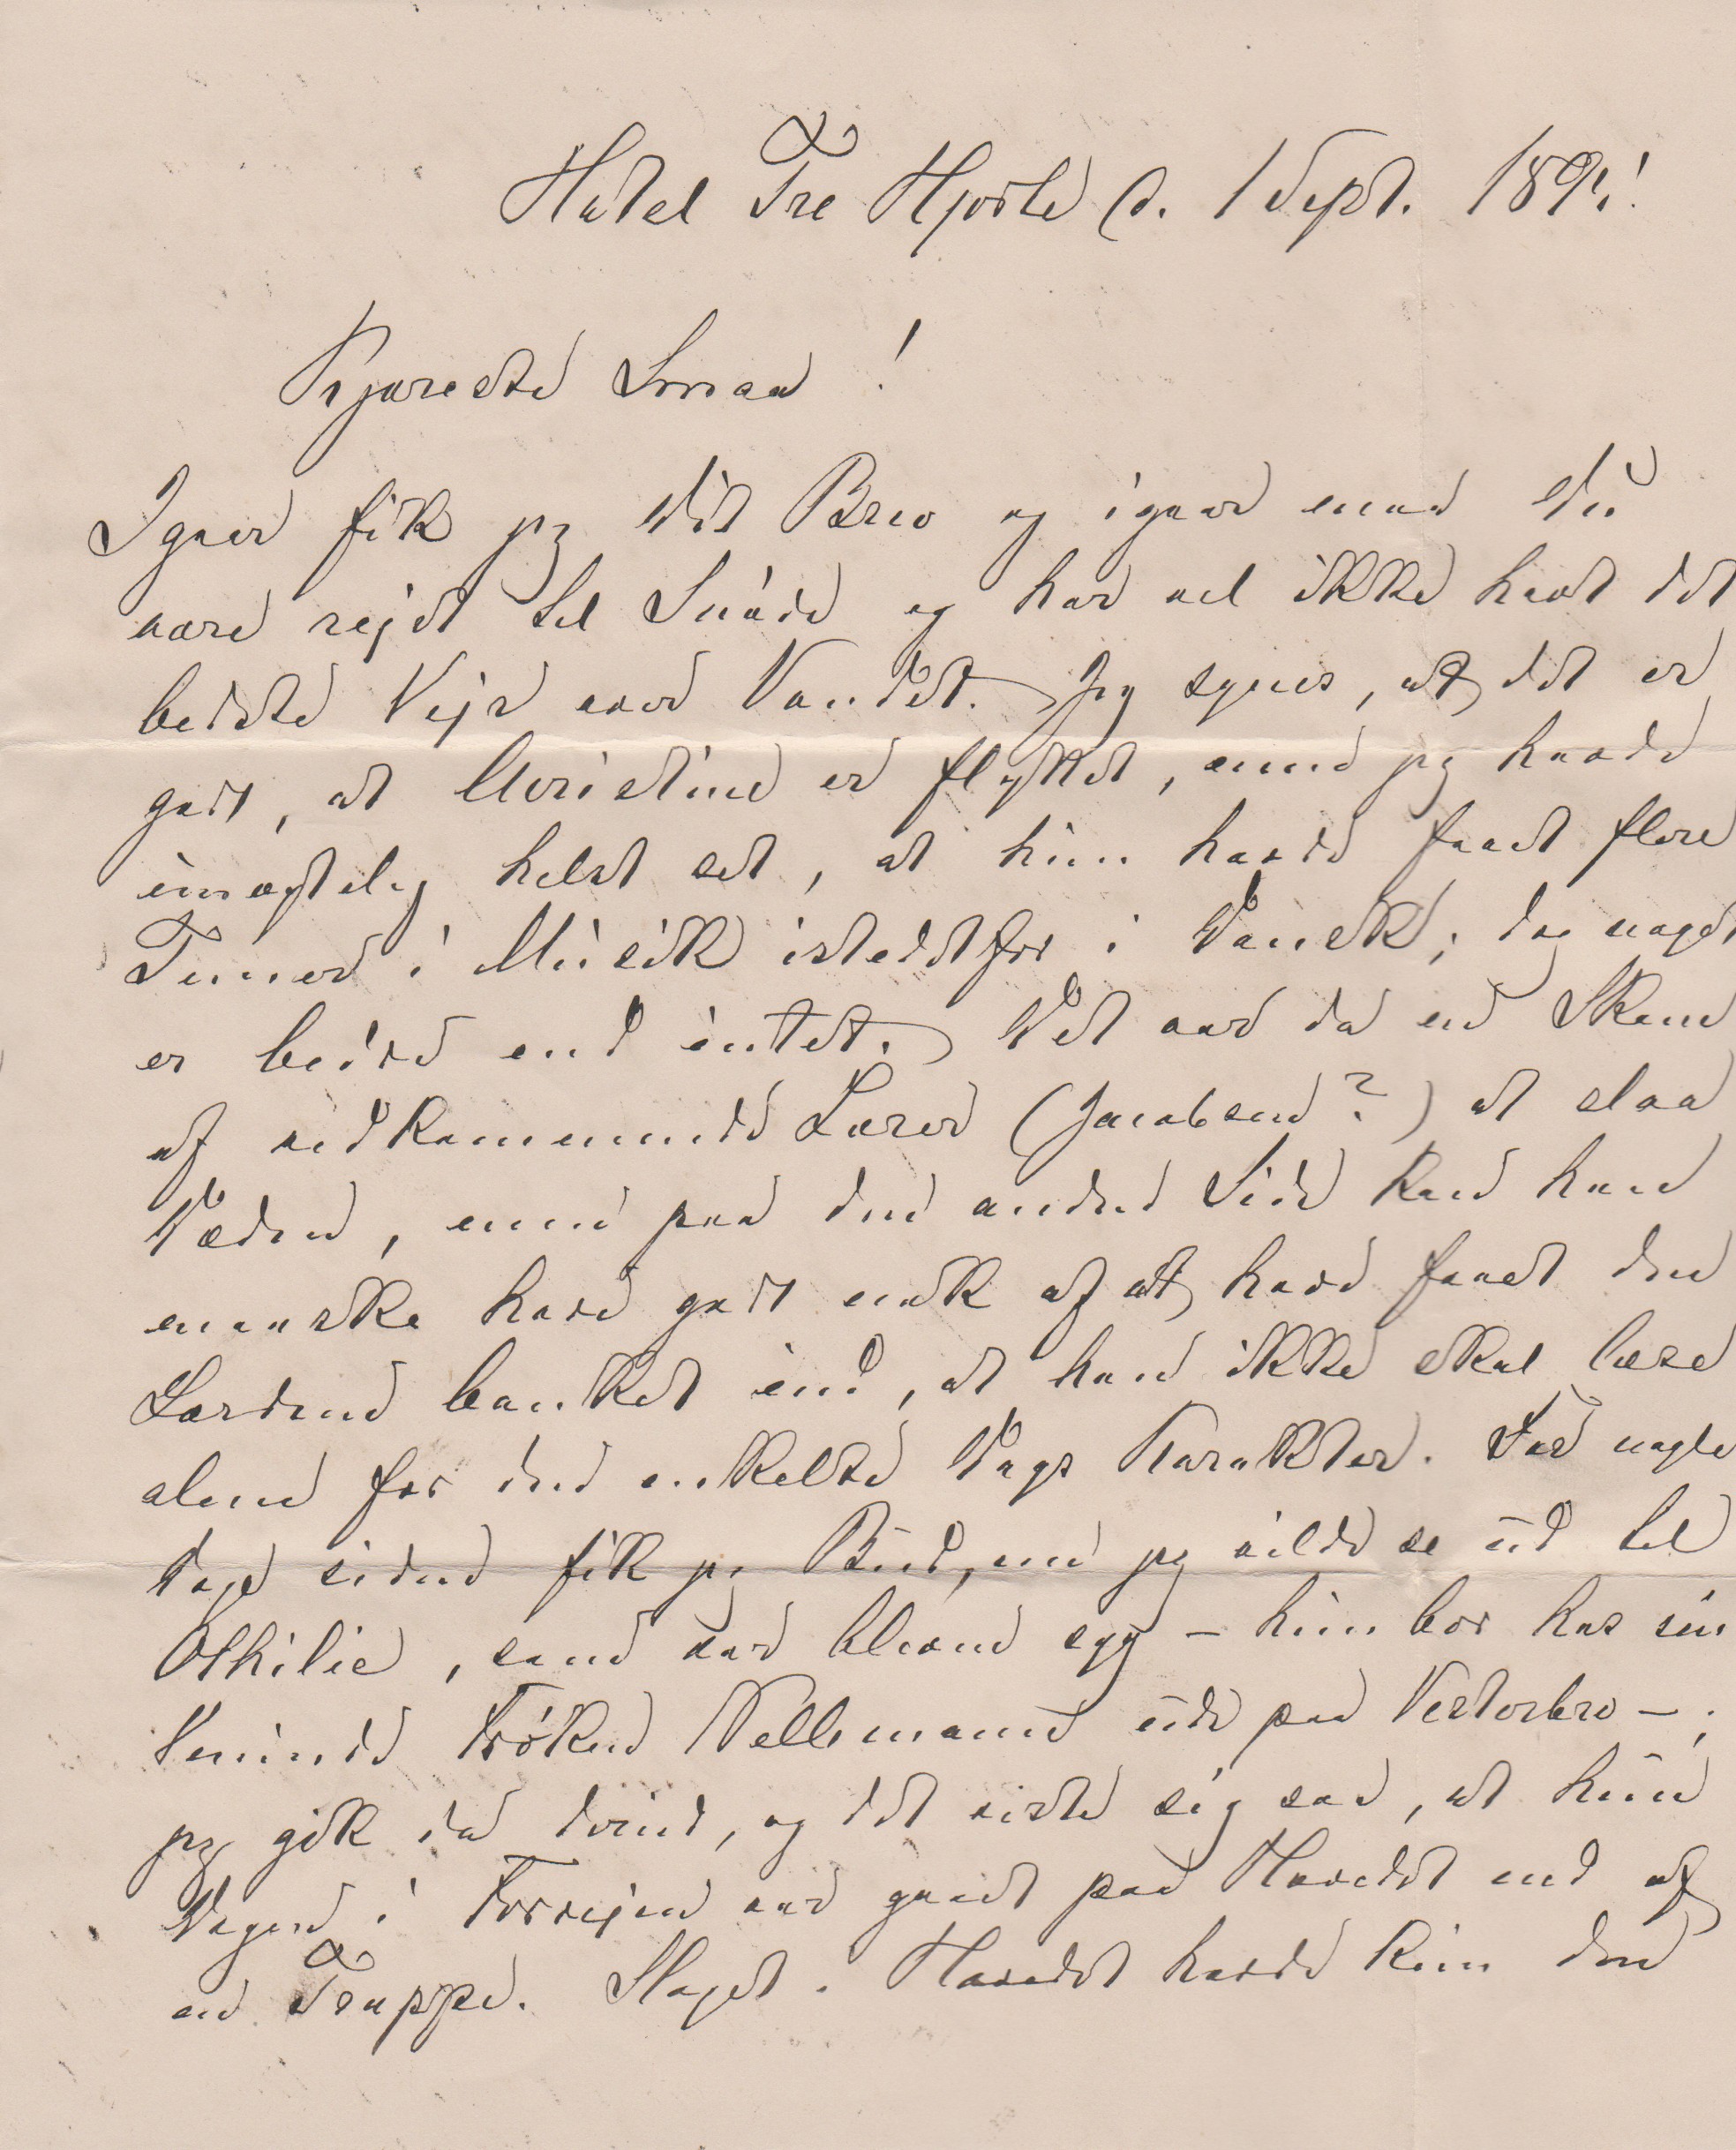 Hotel Tre Hjorte d. 1 Sept. 1891!
Kjæreste Smaa!
Igaar fik jeg dit Brev og igaar maa Du
være rejst til Snøde og har vel ikke havt det
bedste Vejr over Vandet. Jeg synes, at det er
godt, at Christine er flyttet, men jeg havde
unægtelig helst set, at hun havde faaet flere
Timer i Musik istedetfor i Dansk; dog noget
er bedre end intet. Det var da en Skam
af vedkommende Lærer (Jacobsen?) at slaa
Pæderen, men paa den anden Side kan han
maaske have godt nok af at have faaet den
Lærdom banket ind, at han ikke skal læse
alene for den enkelte Dags Karakter. For nogle
Dage siden fik jeg Bud, om jeg vilde se ud til
Othilie, som var bleven syg – hun bor hos sin
Veninde Frøken Nellemann ude paa Vesterbro –;
jeg gik da derind, og det viste sig saa, at hun
Dagen i Forvejen var gaaet paa Hovedet ned af
en Trappe. Slaget i Hovedet havde kun den